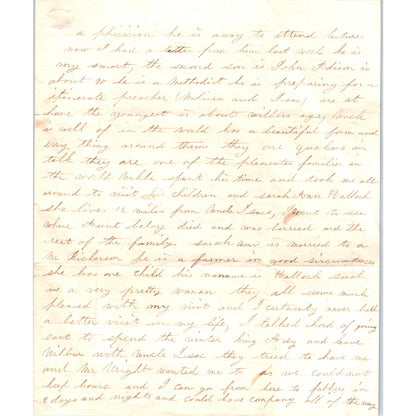 a phisician he is away to attend lecture
now I had a letter from him last week he is
very smart, the second son is John Edison is
about 20 he is a Methodist he is preparing for a
itinerate preacher (Melissa and Isac) are at
home the youngest is about wilbers age, Uncle
is well of in the world has a beautiful farm and
evry thing around them they are quakers in
talk they are one of the plesentes families in
the world Uncle spent his time and took me all
around to visit his children and sarah Ann Hallock
she live 12 miles from Uncle Isac, I went to see
where Aunt died and was berried and the
rest of the family sarah ann is married to a
Mr Rickerson he is a farmer in good sircumstances
she has one child his name is Hallock sarah
is a very pretty woman they all seem much
pleased with my visit and I certainly never had
a better visit in my life, I talked hard of going
east to spend the winter big Ady and leave
Wilbur with Uncle Isac they tried to have me
and Mr Wright wanted me to as we could not
keep house and I can go from here to fathers in
2 days and nights and could have company all of the way